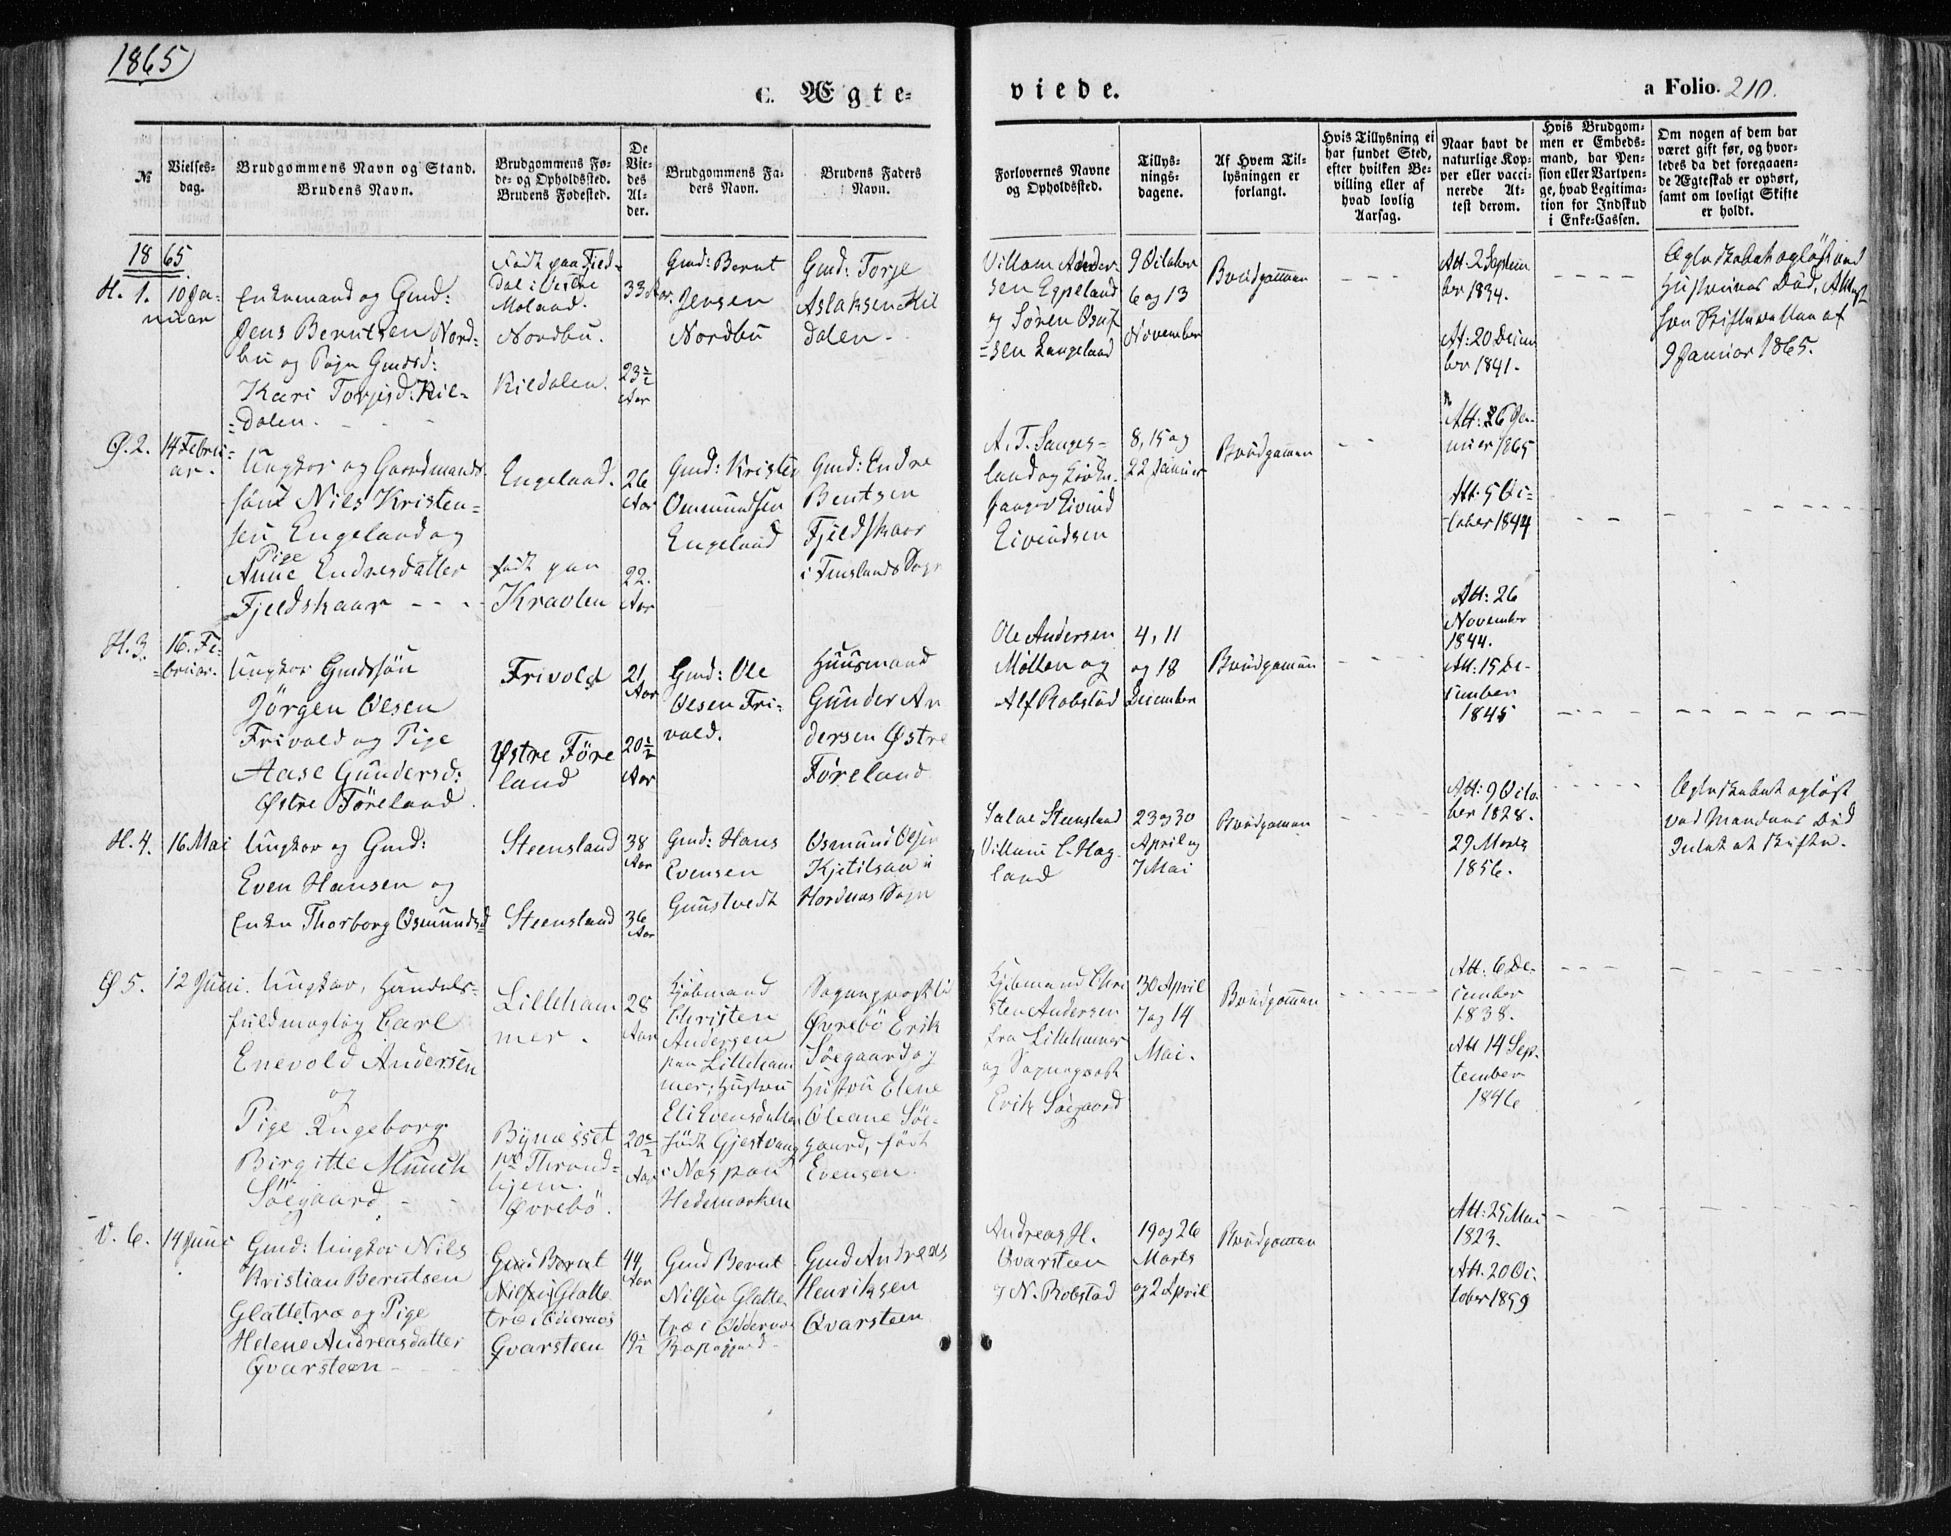 1865
C. Ægte-
viede.
a Folio. 210.
№
Vielses-
dag.
Brudgommens Navn og Stand.
Brudens Navn.
Brudgommens Fø-
de- og Opholdssted.
Brudens Fødested.
De
Vie-
des
Al-
der.
Brudgommens Fa-
ders Navn.
Brudens Faders
Navn.
Forlovernes Navne
og Opholdssted.
Tillys-
nings-
dagene.
Af Hvem Til-
lysningen er
forlangt.
Hvis Tillysning ei
har fundet Sted,
efter hvilken Be-
villing eller af
hvad lovlig
Aarsag.
Naar havt de
naturlige Kop-
per eller vacci-
nerede At-
test derom.
Hvis Brudgom-
men er Embeds-
mand, har Pen-
sion eller Vartpen-
ge, hvad Legitima-
tion for Indskud
i Enke-Cassen.
Om nogen af dem har
været gift før, og hvor-
ledes da det foregaaen-
de Ægteskab er ophørt,
samt om lovligt Skifte
er holdt.
1865
H. 1.
10 Ja-
nuar
Enkemand og Gmd:
Jens Berntsen Nord-
bu og Pige Gmdsd:
Kari Torjesd: Kil-
dalen.
Født paa Fied-
dal i Vestre
Moland.
Nordbu.
Kildalen.
33 Aar
23½
Aar
Gmd: Bernt
Jensen
Nordbu
Gmd: Torje
Aslaksen Kil
dalen
Villom Ander-
sen Egpeland
og Sören Osuf
sen Langeland
9 October
6 og 13
November
Brudgommen
Att: 2 Septem
ber 1834.
At: 20 Decem
ber 1841.
Ægteskabet opløst ved
Hustruens Død, Attest
for Skifte
9 Januar 1865.
Ø. 2.
14 Febru-
ar.
Ungkar og Gaardmands-
søn Nils Kristen-
sen Engeland og
Pige
Anne Endresdatter
Fjeldskaar
Engeland.
født paa
Kraolen
26
Aar
22.
Aar
Gmd: Kristen
Omundsen
Engeland
Gmd: Endre
Bentsen
Fjeldskaar
i Finslands Sogn
A. T. Langes-
land og Kirke-
sanger Eivind
Eivindsen
8, 15 og
22 Januar
Brudgommen
Att: 26 Ja-
nuar 1865
Att: 5 Oc-
tober 1844
H. 3.
16. Fe-
bruar.
Ungkar Gmdssøn
Jörgen Olsen
Frivold og Pige
Aase Gundersd:
Østre Föreland
Frivold
Østre Före
land
21
Aar
20½
Aar
Gmd: Ole
Olsen Fri-
vold.
Huusmand
Gunder An
dersen Østre
Föreland
Ole Andersen
Mollan og
Alf Robstad
4, 11
og 18
December
Brudgommen
Att: 26
November
1844.
Att: 15 De-
cember
1845
H. 4.
16 Mai
Ungkar og Gmd:
Even Hansen og
Enken Thorborg Osmundsd
Steensland
Steensland
38
Aar
36
Aar
Gmd: Hans
Evensen
Gunstvedt
Osmund Olsen
Kjetilsaa i
Hordnes Sogn
Salve Steensland
Villum C. Hag-
land
23 og 30
April og
7 Mai
Brudgommen
Att: 9 Octo-
ber 1828.
29 Marts
1856.
Ægteskabet opløst
ved Mandens Død
Intet at skifte.
Ø 5.
12 Juni
Ungkar, Handels-
fuldmægtig Carl
Enevold Andersen
og
Pige Ingeborg
Birgitte Munch
Söegaard
Lilleham
mer.
Bynesset
pr Thrond-
hjem.
Øvrebö.
28
Aar
20½
Aar
Kjöbmand
Christen
Andersen
paa Lilleham
mer; Hustru
Eli Evensdatter
født Gjestvang
i Nes paa
Hedemarken
Sognepræst til
Øvrebö Erik
Söegaard og
Hustru Elene
Oleane Söe-
gaard, født
Evensen.
Kjöbmand Chri
sten Andersen
fra Lillehammer
og Sognepræst
Erik Söegaard
30 April
7 og 14
Mai.
Brudgommen
Att: 6 De-
cember
1838.
Att 14 Sep-
tember
1846
V. 6.
14 Juni
Gmd: Ungkar Nils
Kristian Berntsen
Glattetræ og Pige
Helene Andreasdatter
Qvarsteen
Gmd Bernt
Nilsen Glatte
træ i Oddernes
Qvarsteen
44
Aar
19½
Gmd Bernt
Nilsen Glatte
træ i Oddernes
Gmd Andreas
Henriksen
Qvarsteen
Andreas H.
Qvarsteen
og N. Robstad
19 og 26
Marts
og 2 April
Brudgommen
Att: 25 Mai
1823.
Att. 20 Oc-
tober 1859